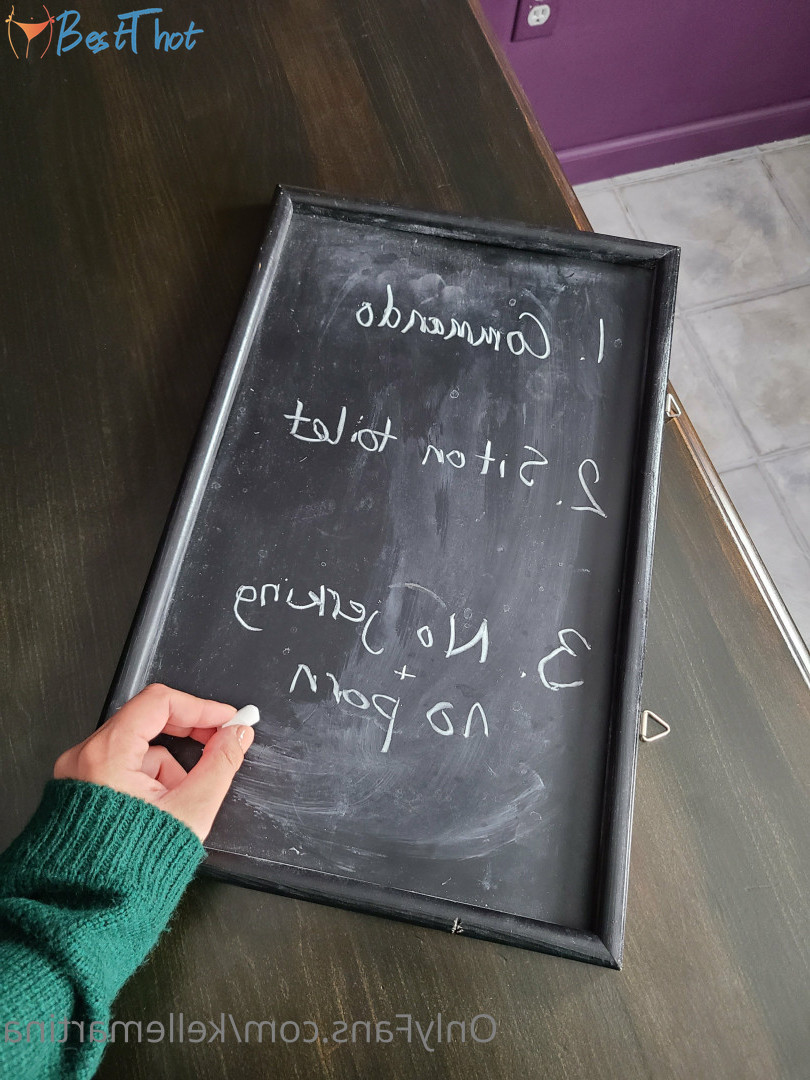 BestThot
1. Commando
2. Sit on toilet
3. No jerking
+
no porn
OnlyFans.com/kellemartina